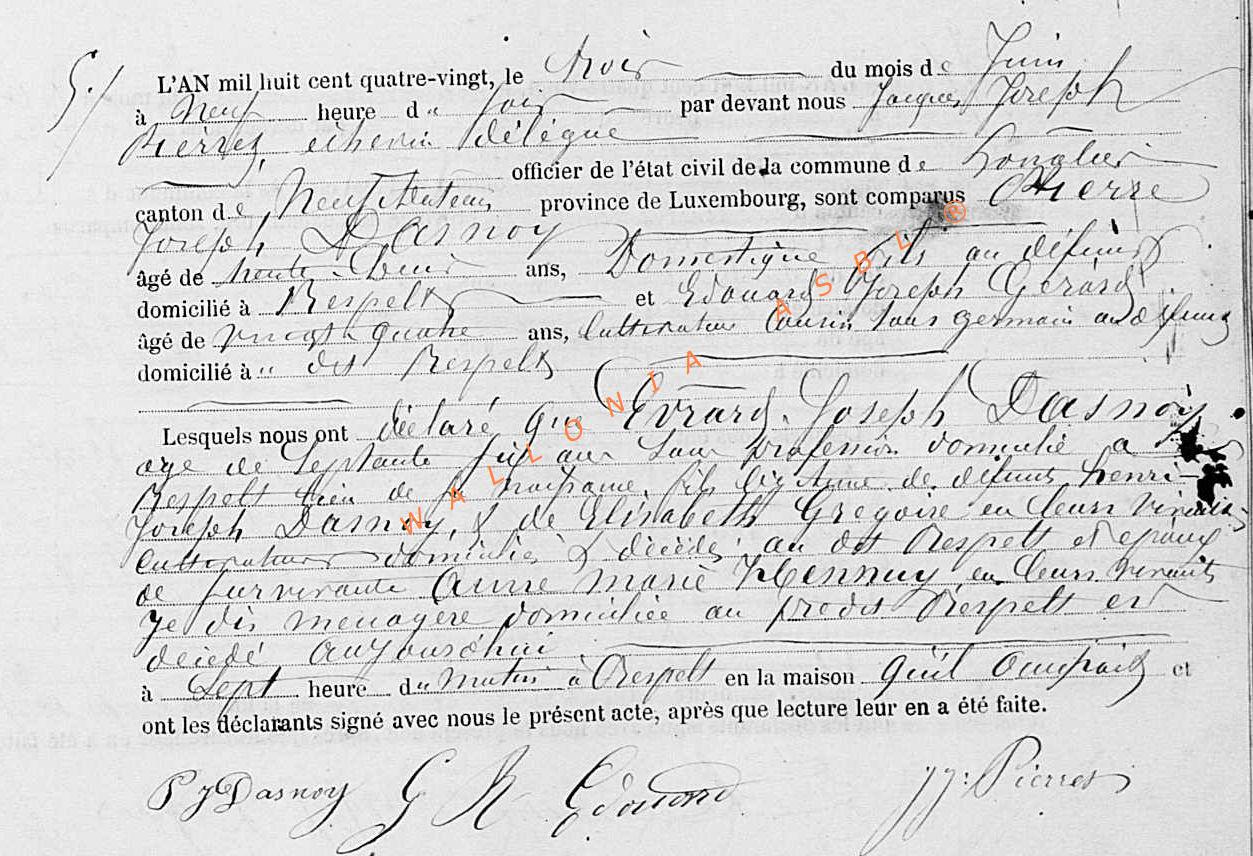 5/
L'AN mil huit cent quatre-vingt, le trois du mois de Juin
à Neuf heure du soir par devant nous Jacques Joseph
Pierret, echevin délégué
officier de l'état civil de la commune de Longlier
canton de Neufchateau province de Luxembourg, sont comparus Pierre
Joseph Dasnoy
âgé de trente deux ans, Domestique fils au défunt
domicilié à Respelt et Edouard Joseph Gérard
âgé de vingt quatre ans, Cultivateur Cousin sous germain au défunt
domicilié à dit Respelt
Lesquels nous ont déclaré que Evrard Joseph Dasnoy
agé de Septante six ans Sans profession domicilié a
Respelt lieu de sa naissance, fils légitime de défunts henri-
Joseph Dasnoy, & de Elisabeth Gregoire en leurs vivants
Cultivateurs domiciliés & décédés au dit Respelt et epoux
de survivante Anne marie Hennuy en leurs vivants
je dis menagère domiciliée au predit Respelt est
décédé aujourdhui
à Sept heure du Matin à Respelt en la maison qu'il Occupait et
ont les déclarants signé avec nous le présent acte, après que lecture leur en a été faite.
P J Dasnoy G R Edouard JJ: Pierret
WALLONIA ASBL ®